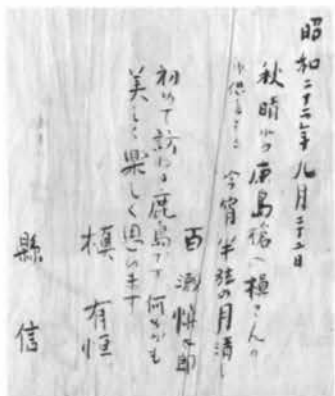 昭和二十二年九月二十二日
秋晴れの鹿島槍へ槇さんの
お供をして
今宵半弦の月清し
百瀬慎太郎
初めて訪ねる鹿島にて何もかも
美しく楽しく思います
槇 有恒
縣 信